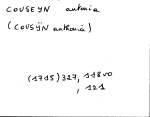 COUSEYN antonia
(COUSŸN anthonia)
(1715) 327, 118vo
, 121